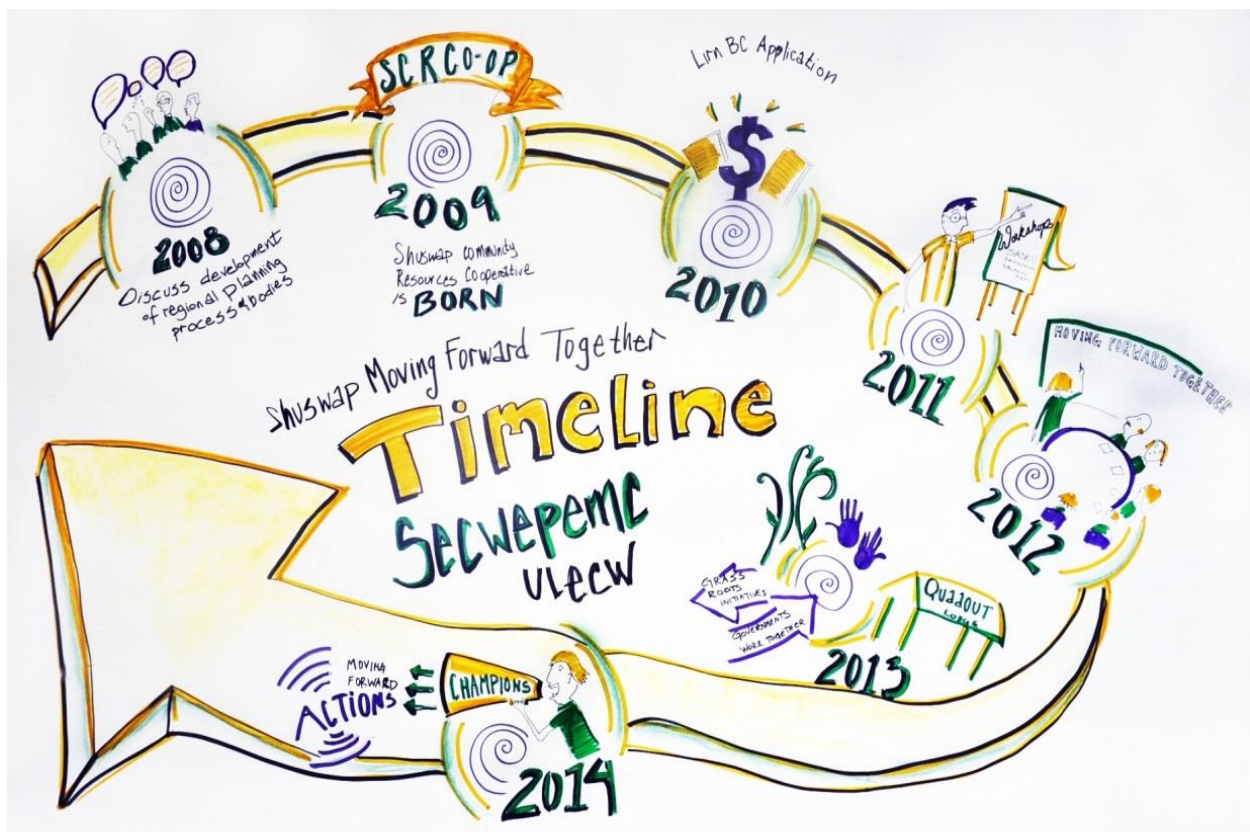 2008
Discuss development
of regional Planning
process & bodies
SCRCO-OP
2009
Shuswap community
Resources Cooperative
is BORN
Lirn BC Application
$
2010
Wokshop
2011
MOVING FORWARD TOGETHER
2012
Shuswap Moving Forward Together
Timeline
Secwepemc
ulecw
GRASS
ROOTS
INITIATIVES
GOVERNMENTS
WORK TOGETHER
QUAAOUT
LODGE
2013
MOVING
FORWARD
ACTIONS
CHAMPIONS
2014